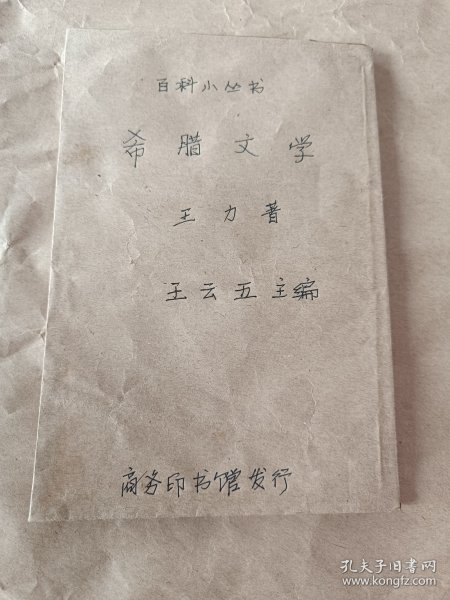 百科小丛书
希腊文学
王力著
王云五主编
商务印书馆发行
孔夫子旧书网
www.kongfz.com